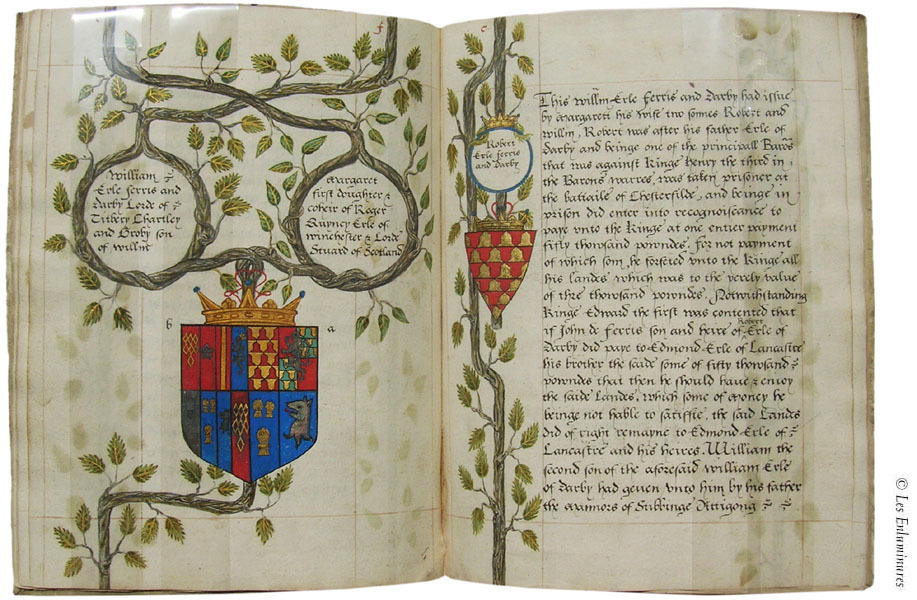 f
William
Erle ferris and
Darby Lorde of
Titbery Chartley
and Groby son
of willm
Margaret
first doughter &
coheir of Roger
Quyncy Erle of
winchester & Lorde
Stuard of Scotland
b
a
c
Robert
Erle ferris
and Darby
This willm Erle ferris and Darby had issue
by Margaret his wife two sonnes Robert and
willm, Robert was after his father Erle of
Darby and beinge one of the principall Barōs
that was against Kinge henry the third in
the Barons warres, was taken prisoner at
the battaile of Chesterfilde, and beinge in
prison did enter into recognoiscance to
paye vnto the Kinge at one entier payment
fifty thowsand powndes. for not payment
of which som, he forfeted vnto the Kinge all
his landes which was to the yerely value
of thre thowsand powndes. Notwithstanding
Kinge Edward the first was contented that
if John de ferris son and heire of Robert Erle of
Darby did paye to Edmond Erle of Lancastre
his brother the saide some of fifty thowsand
powndes that then he should have & enioy
the saide Landes. which some of money he
beinge not hable to satisfie, the said Landes
did of right remayne to Edmond Erle of
Lancastre and his heires. William the
second son of the aforesaid william Erle
of Darby had geven vnto him by his father
the mannors of Stibbinge
© Les Enluminures